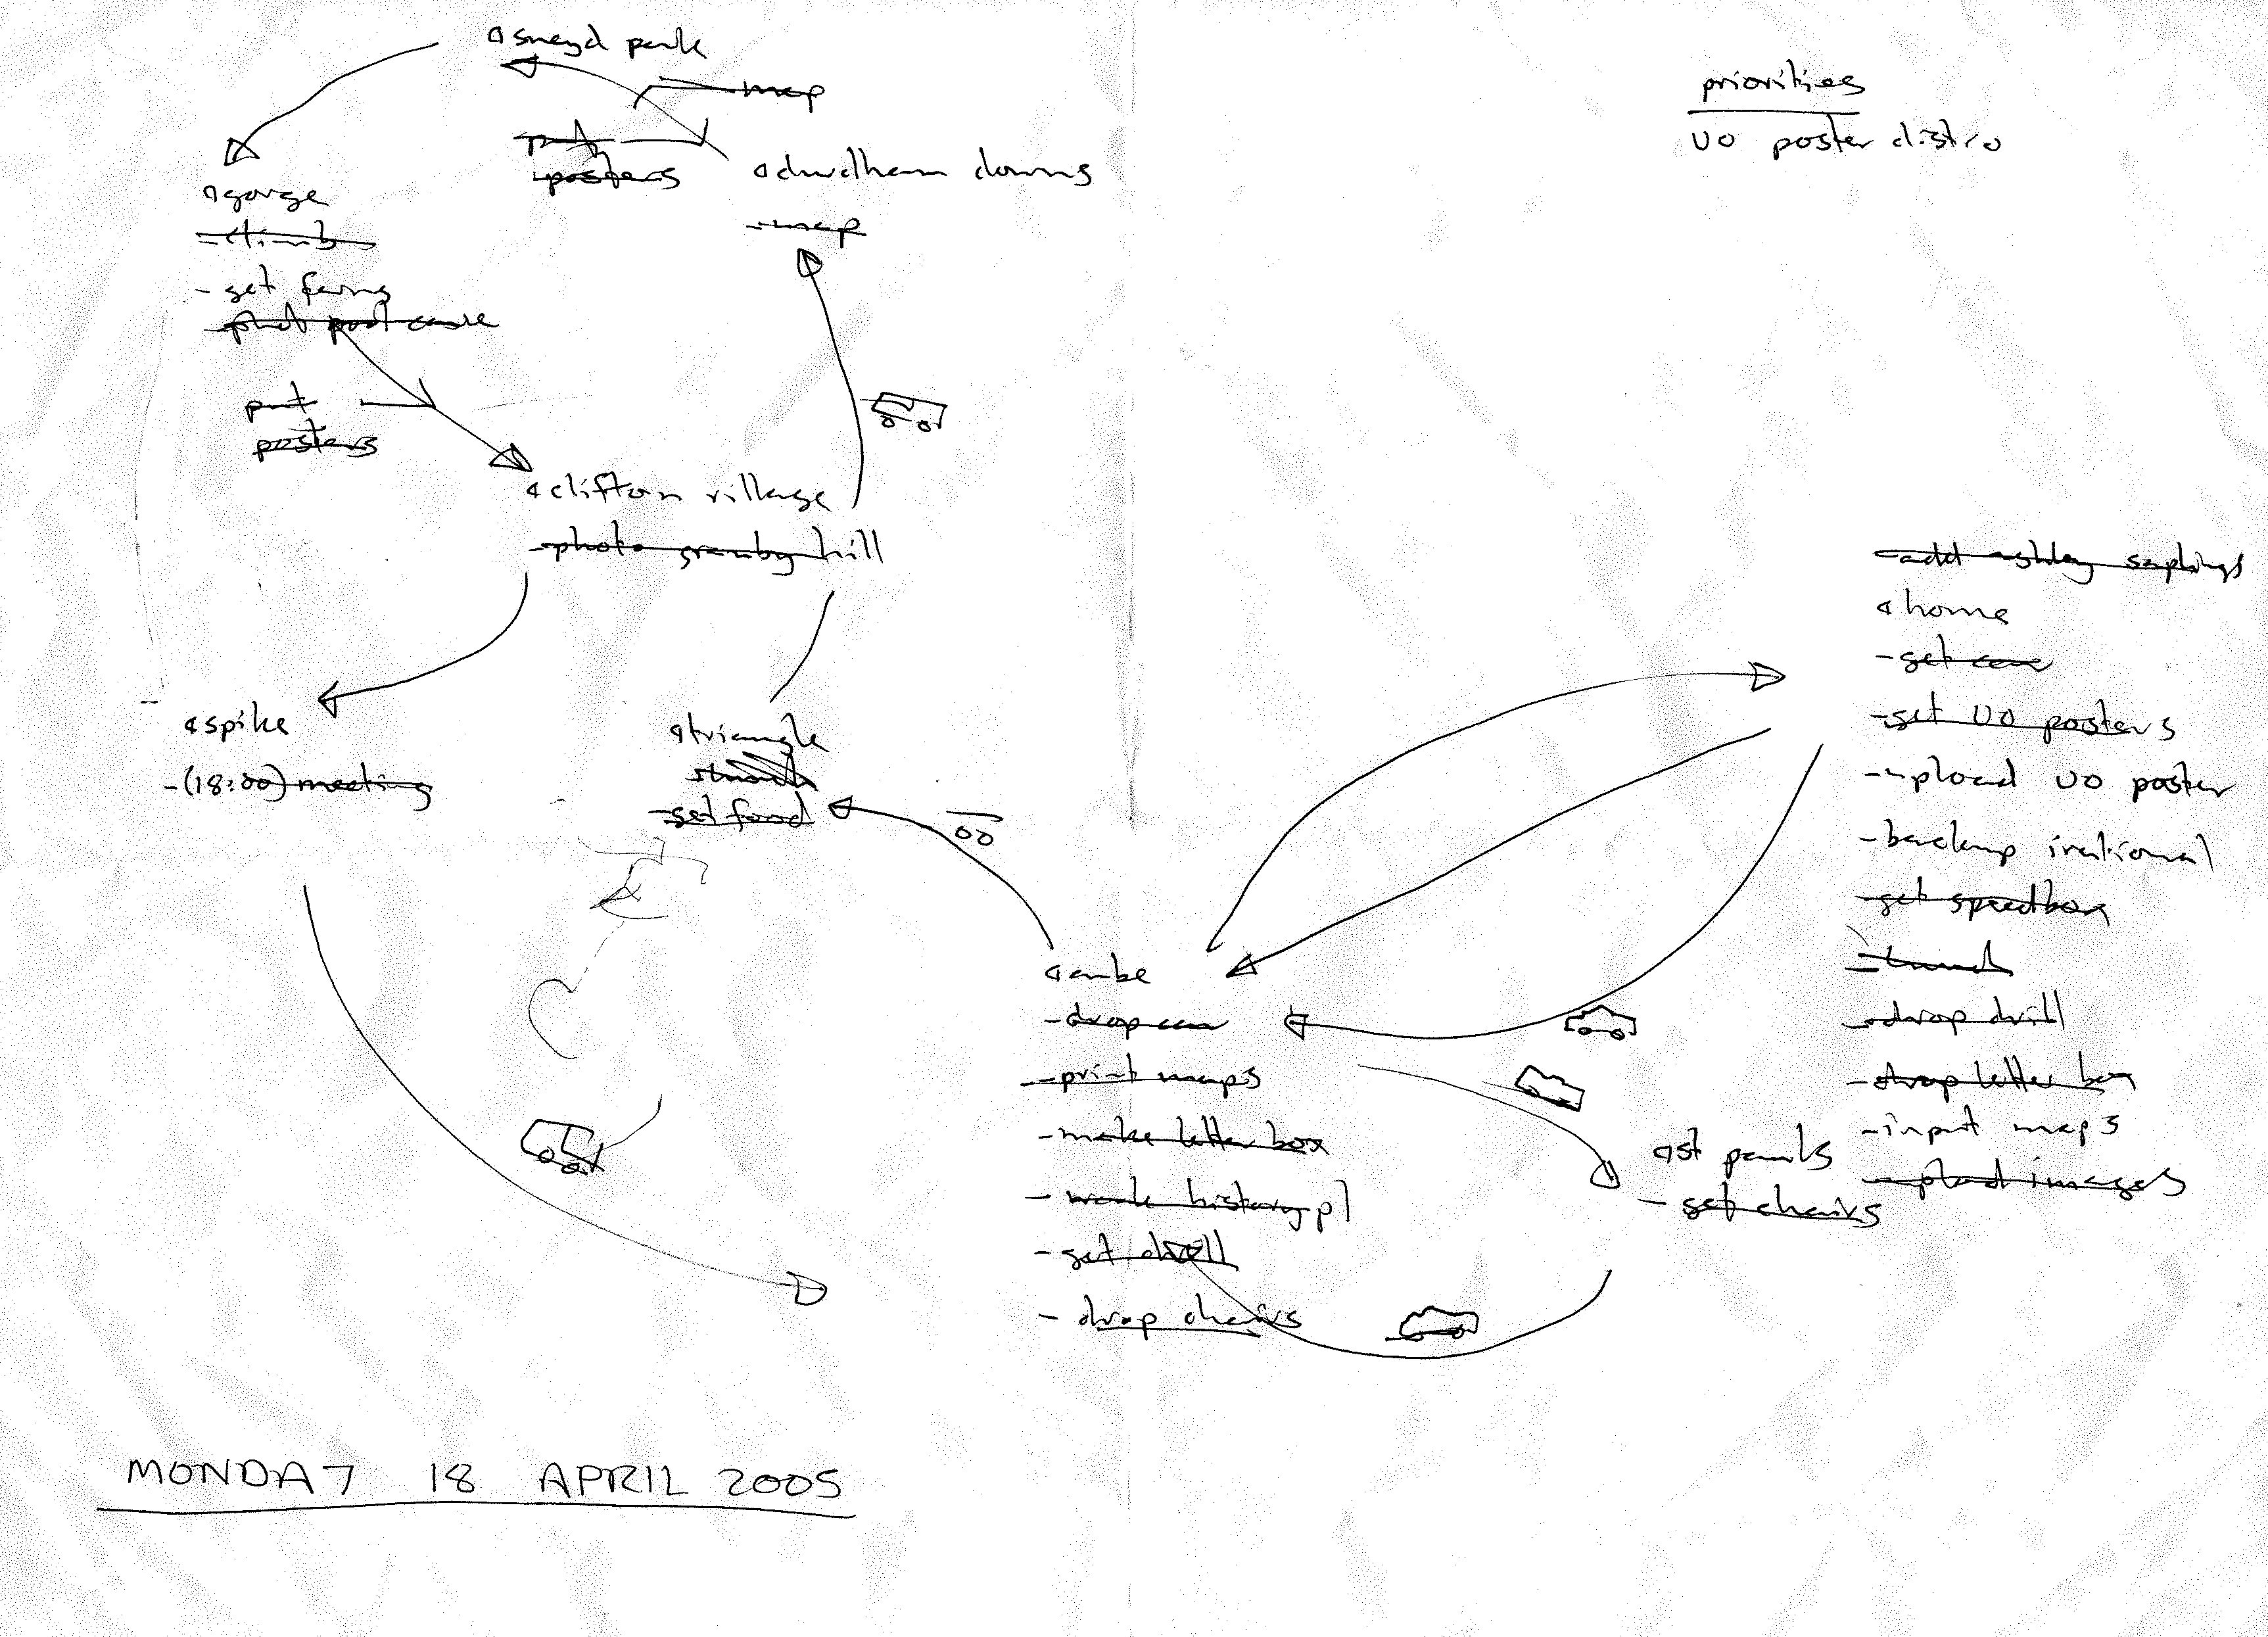 @sneyd park
map
put
posters
@durdham downs
- map
priorities
UO poster distro
@gorge
- climb
- get ferns
put
posters
@clifton village
- photo granby hill
- add ashley saplings
@home
- get
- get UO posters
- upload UO poster
- backup irational
- get speedbox
- lunch
- drop drill
- drop letter box
- input maps
- upload images
@spike
- (18:00) meeting
@triangle
- get food
@cube
- drop
- print maps
- make letter box
- history pl
- get drill
- drop chairs
@st pauls
- get chairs
MONDAY 18 APRIL 2005